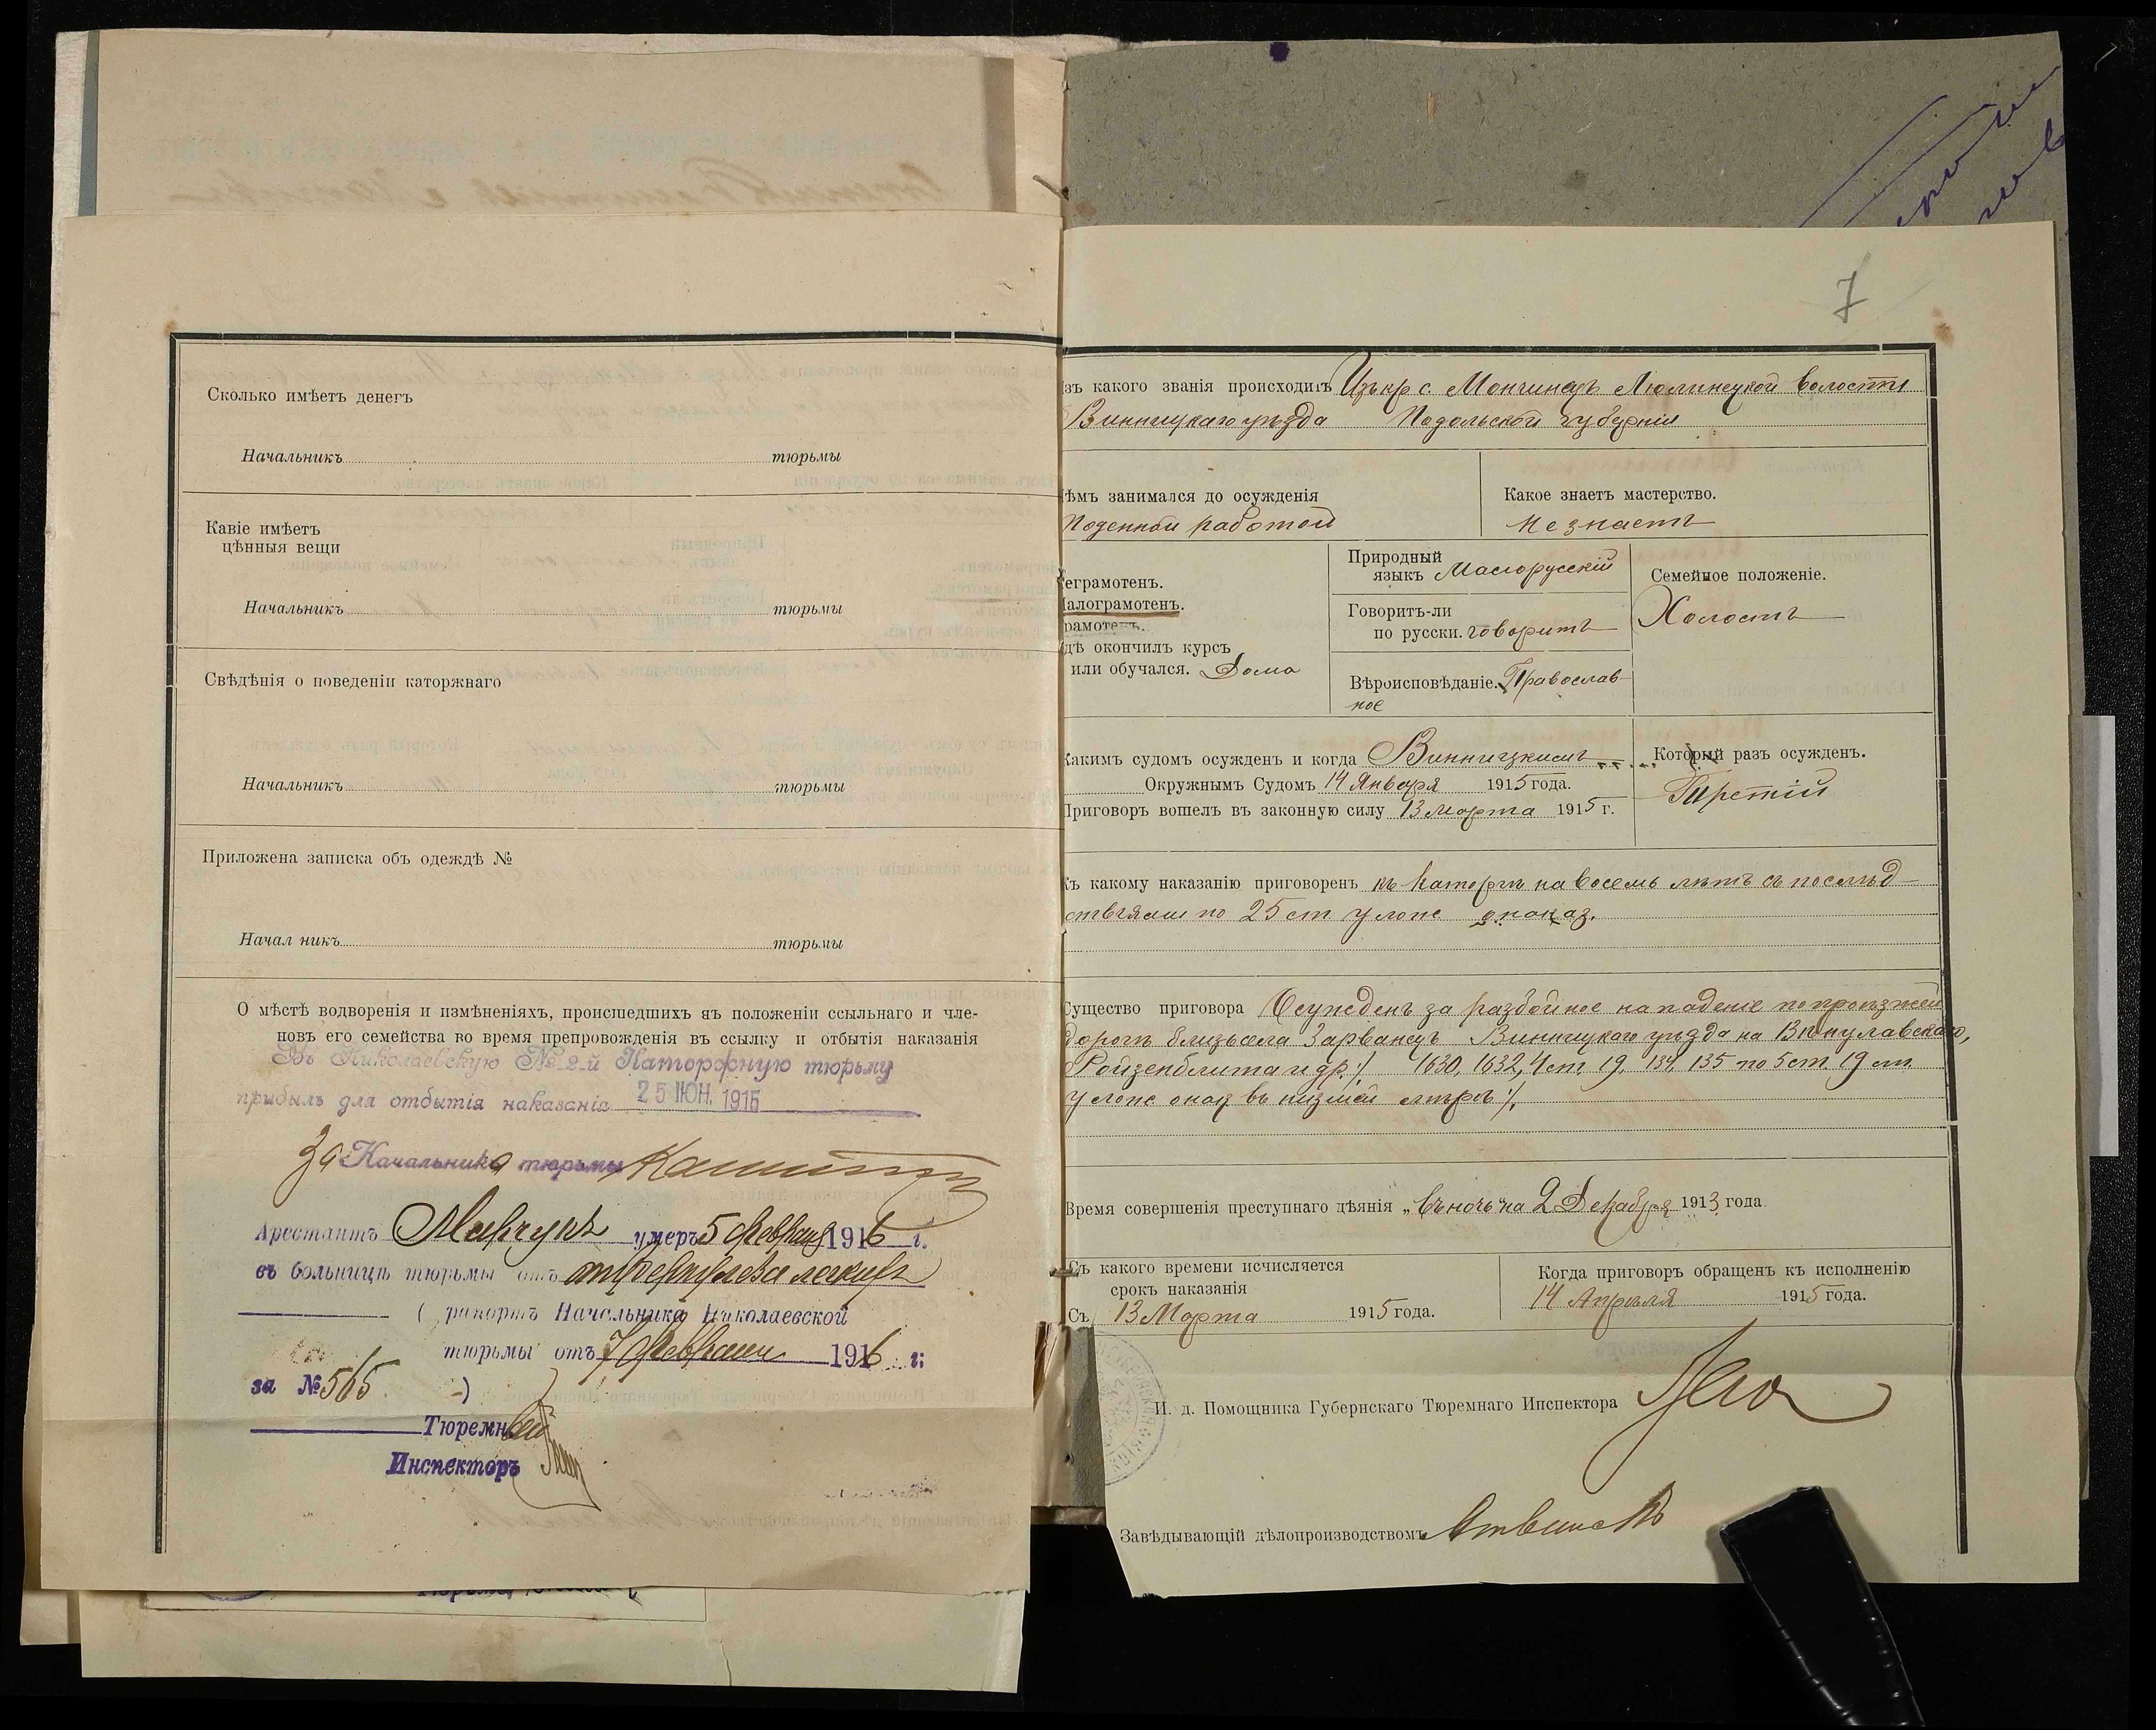 Сколько имѣетъ денегъ
Начальникъ тюрьмы
Кавіе имѣетъ
цѣнныя вещи
Начальникъ тюрьмы
Свѣдѣнія о поведеніи каторжнаго
Начальникъ тюрьмы
Приложена записка объ одеждѣ №
Начал никъ тюрьмы
О мѣстѣ водворенія и измѣненіяхъ, происшедшихъ въ положеніи ссыльнаго и чле-
новъ его семейства во время препровожденія въ ссылку и отбытія наказанія
Въ Николаевскую № 2-й Каторжную тюрьму
прибылъ для отбытія наказанія 25 ІЮН. 1915
За Начальника тюрьмы
Арестантъ Марчукъ умеръ 5 февраля 1916 г.
въ больницѣ тюрьмы отъ туберкулеза легкихъ
( рапортъ Начальника Николаевской
тюрьмы отъ 7 февраля 1916 г:
за № 565 )
Тюремный
Инспекторъ
7
зъ какого званія происходитъ Изъ кр. с. Мончинецъ Люлинецкой волости
Винницкаго уѣзда Подольской губерніи
ѣмъ занимался до осужденія
Поденной работой
Какое знаетъ мастерство.
Не знаетъ
еграмотенъ.
алограмотенъ.
рамотенъ.
дѣ окончилъ курсъ
или обучался. Дома
Природный
языкъ Малорусскій
Говоритъ-ли
по русски. говоритъ
Вѣроисповѣданіе. Православ-
ное
Семейное положеніе.
Холостъ
Какимъ судомъ осужденъ и когда Винницкимъ
Окружнымъ Судомъ 14 Января 1915 года.
Приговоръ вошелъ въ законную силу 13 марта 1915 г.
Который разъ осужденъ.
Третій
Къ какому наказанію приговоренъ къ каторгѣ на восемь лѣтъ съ послѣд-
ствіями по 25 ст улож о наказ.
Существо приговора Осужденъ за разбойное нападеніе на проѣзжей
дорогѣ близъ села Зарванецъ Винницкаго уѣзда на
Ройзенблита и др. /. 1630, 1632, 4 ст 19, 134, 135 по 5 ст. 19 ст.
улож о нак въ низшей мѣрѣ /.
Время совершенія преступнаго дѣянія „въ ночь" на 2 Декабря 1913 года
Съ какого времени исчисляется
срокъ наказанія
Съ 13 Марта 1915 года.
Когда приговоръ обращенъ къ исполненію
14 Апрѣля 1915 года.
И. д. Помощника Губернскаго Тюремнаго Инспектора
Завѣдывающій дѣлопроизводствомъ